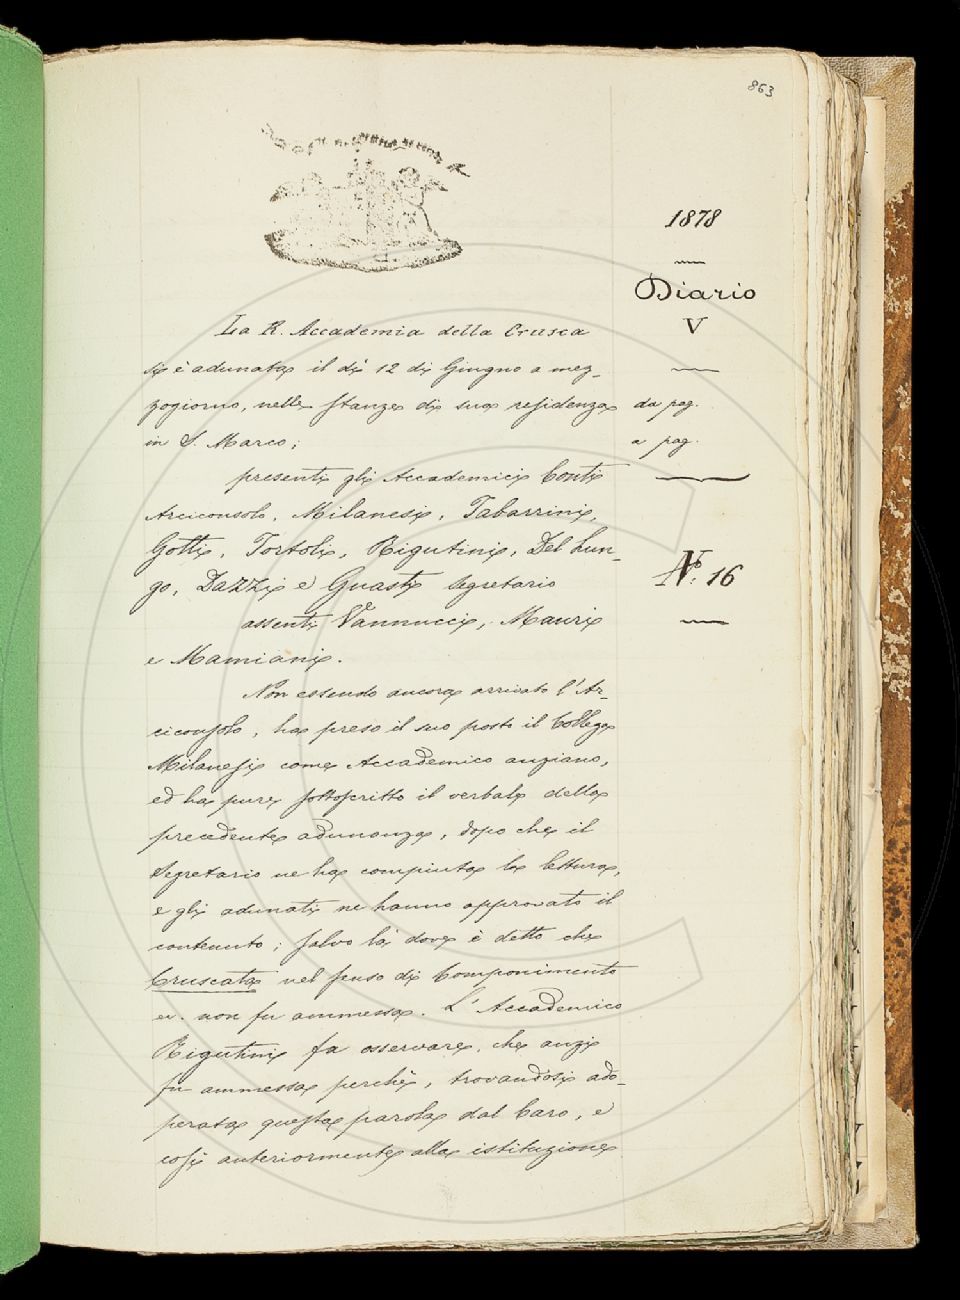 863
1878
Diario
V
da pag.
a pag.
N.° 16
La R. Accademia della Crusca
si è adunata il dì 12 di Giugno a mez-
zogiorno, nelle stanze di sua residenza
in S. Marco;
presenti gli Accademici Conti
Arciconsolo, Milanesi, Tabarrini,
Gotti, Tortoli, Rigutini, Del Lun-
go, Dazzi e Guasti Segretario
assenti Vannucci, Mauri
e Mamiani.
Non essendo ancora arrivato l'Ar-
ciconsolo, ha preso il suo posto il Collega
Milanesi come Accademico anziano,
ed ha pure sottoscritto il verbale della
precedente adunanza, dopo che il
Segretario ne ha compiuta la lettura,
e gli adunati ne hanno approvato il
contenuto; salvo là dove è detto che
Cruscata nel senso di Componimento
ec. non fu ammessa. L'Accademico
Rigutini fa osservare, che anzi
fu ammessa perchè, trovandosi ado-
perata questa parola dal Caro, e
così anteriormente alla istituzione